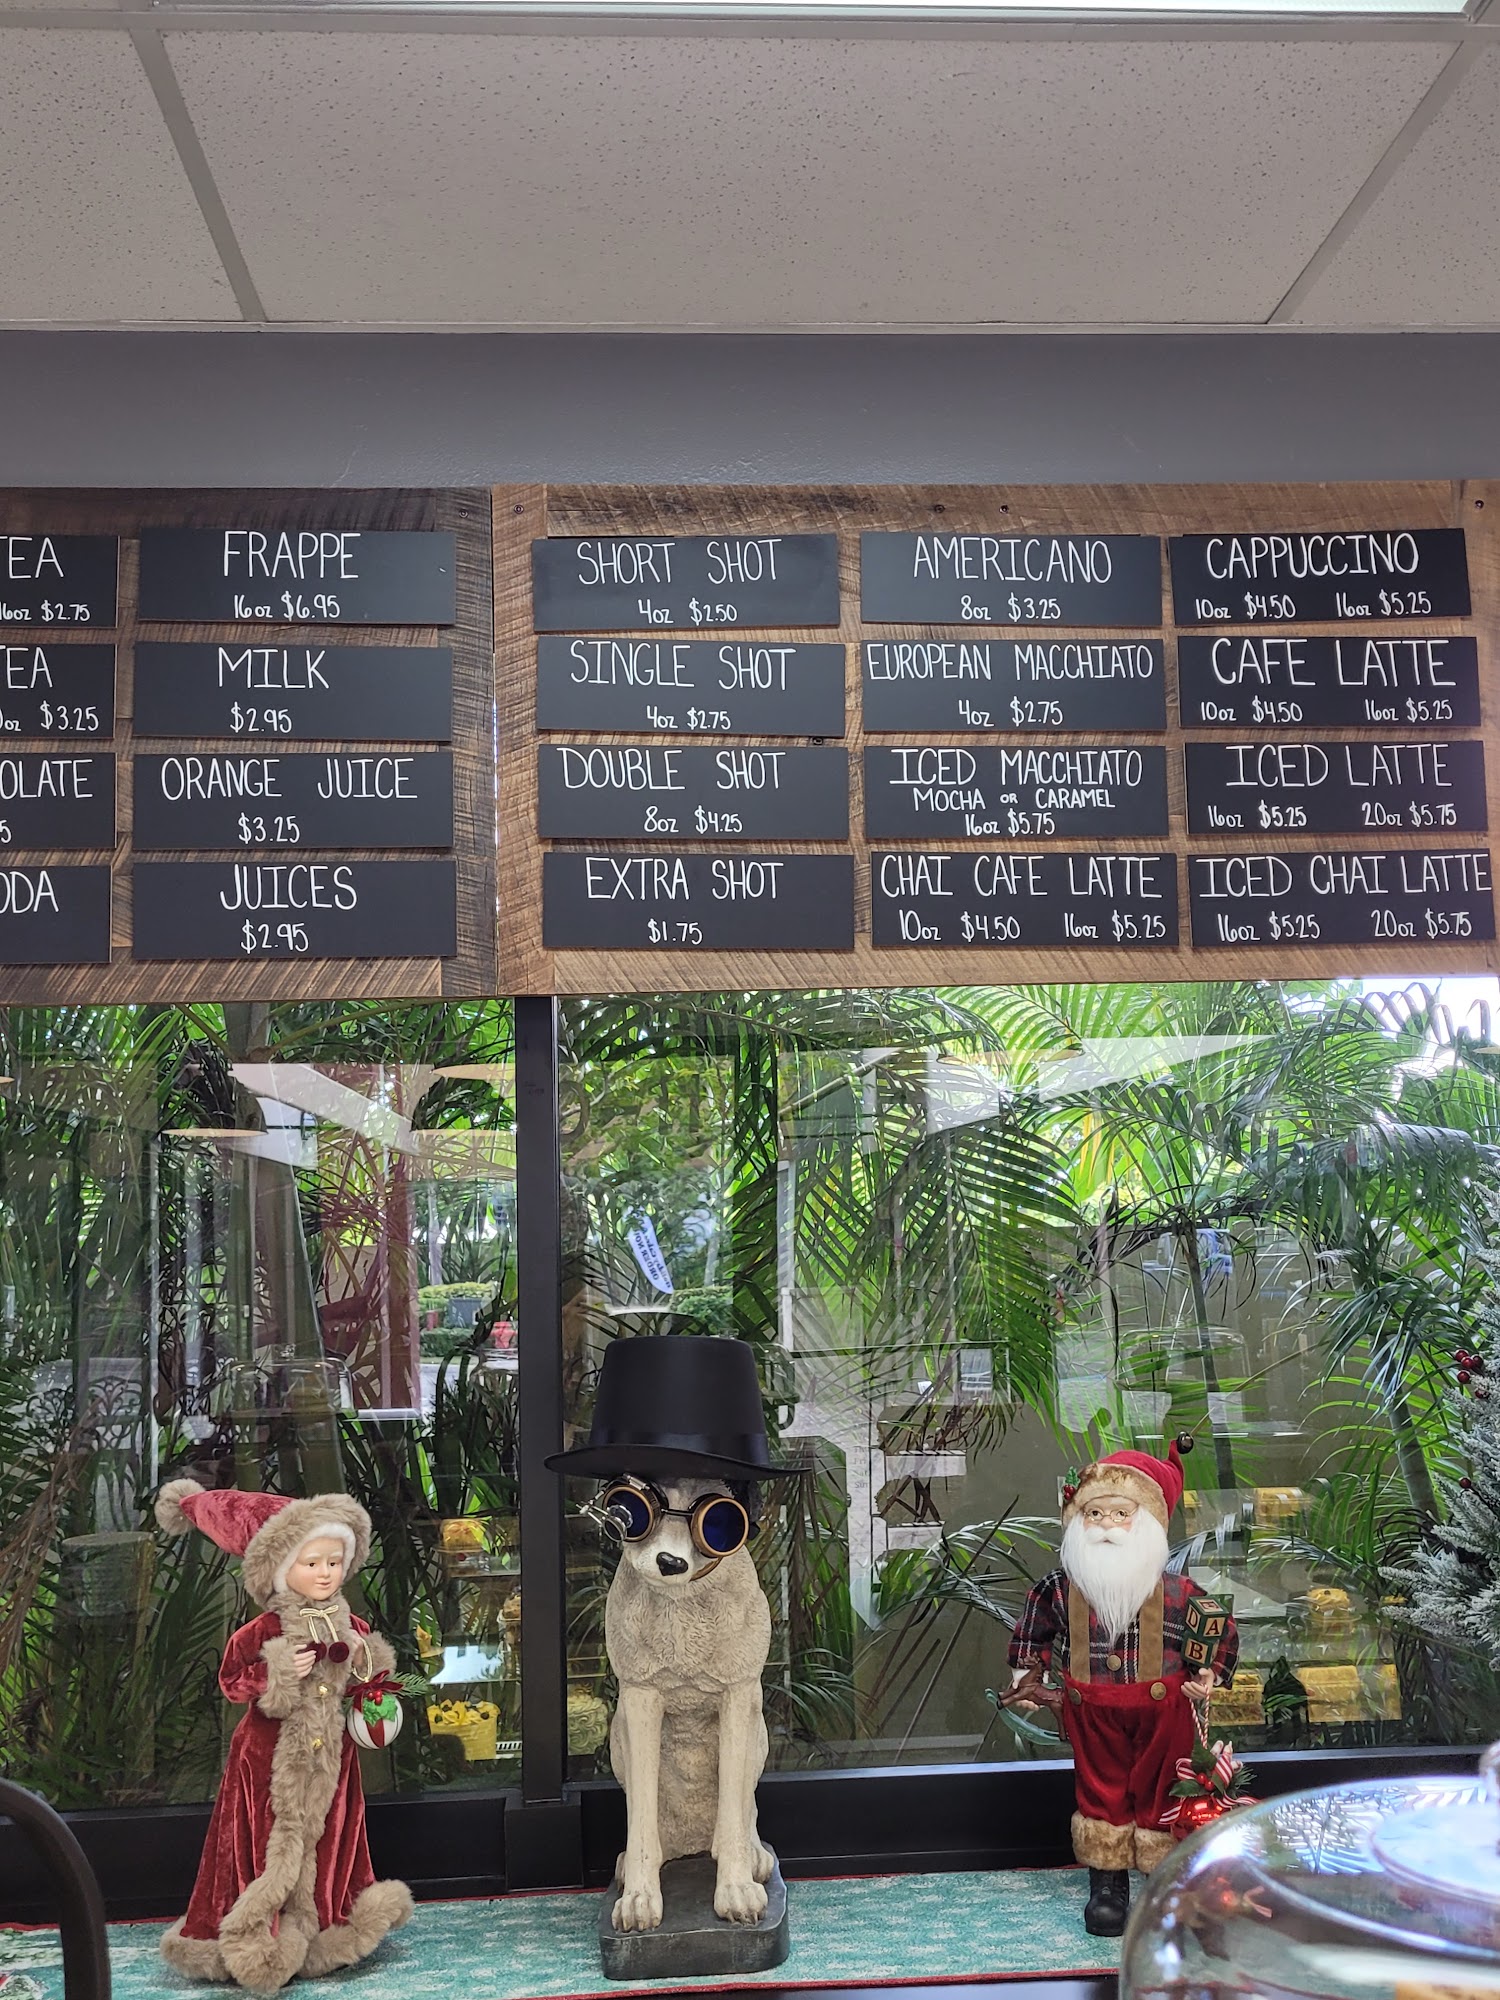 TEA
16oz $2.75
TEA
oz $3.25
OLATE
5
ODA
FRAPPE
16oz $6.95
MILK
$2.95
ORANGE JUICE
$3.25
JUICES
$2.95
SHORT SHOT
4oz $2.50
SINGLE SHOT
4oz $2.75
DOUBLE SHOT
8oz $4.25
EXTRA SHOT
$1.75
AMERICANO
8oz $3.25
EUROPEAN MACCHIATO
4oz $2.75
ICED MACCHIATO
MOCHA OR CARAMEL
16oz $5.75
CHAI CAFE LATTE
10oz $4.50 16oz $5.25
CAPPUCCINO
10oz $4.50 16oz $5.25
CAFE LATTE
10oz $4.50 16oz $5.25
ICED LATTE
16oz $5.25 20oz $5.75
ICED CHAI LATTE
16oz $5.25 20oz $5.75
ORDER NOW
D A
B